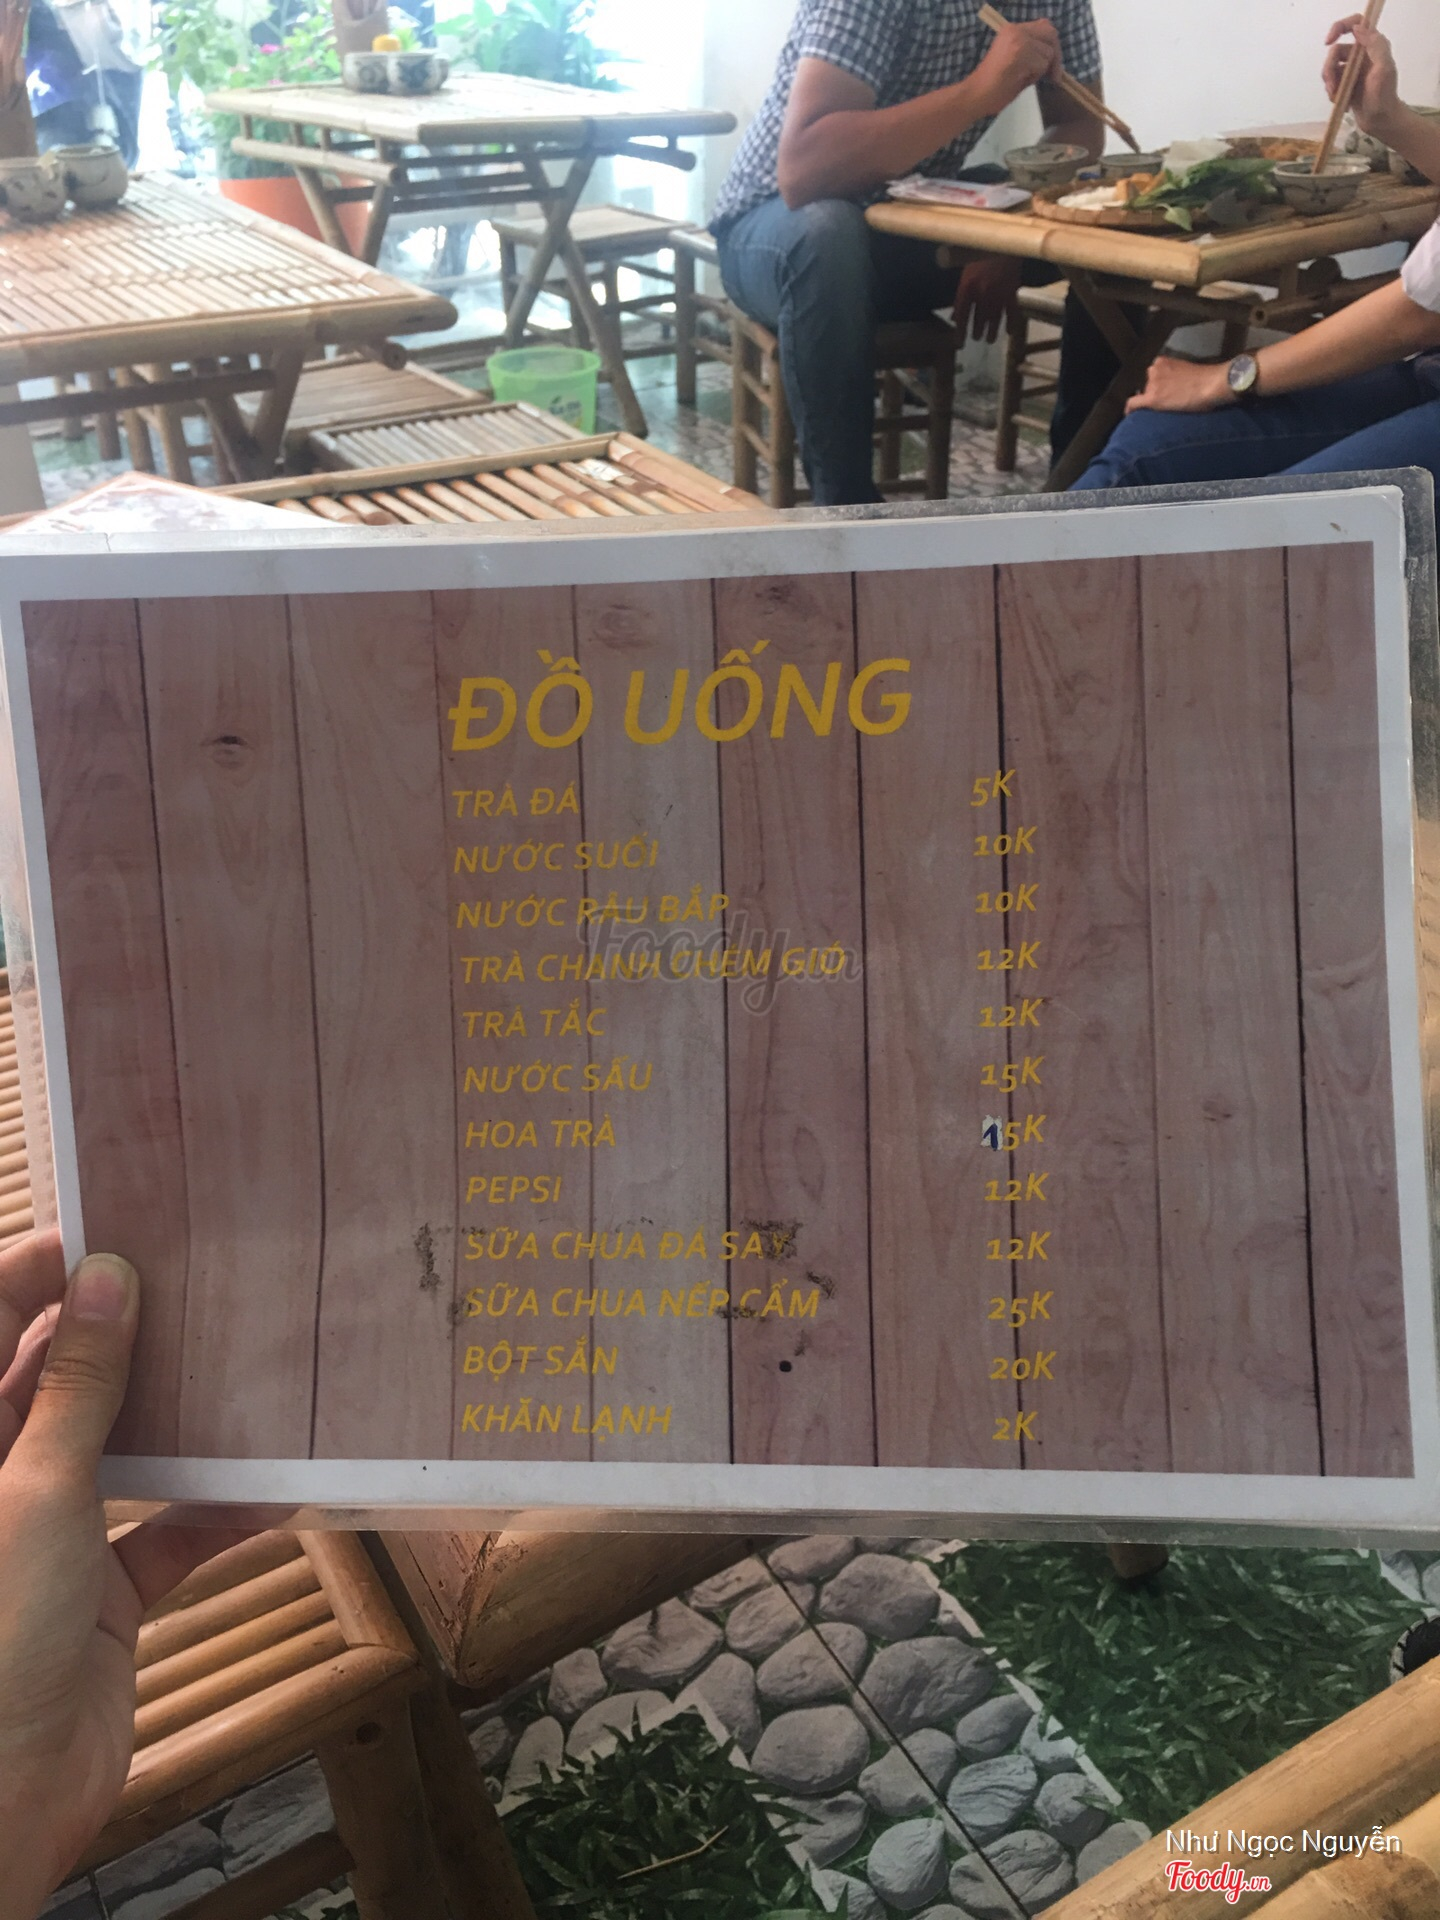 ĐỒ UỐNG
TRÀ ĐÁ 5K
NƯỚC SUỐI 10K
NƯỚC RÂU BẮP 10K
TRÀ CHANH CHÉM GIÓ 12K
TRÀ TẮC 12K
NƯỚC SẤU 15K
HOA TRÀ 15K
PEPSI 12K
SỮA CHUA ĐÁ SAY 12K
SỮA CHUA NẾP CẨM 25K
BỘT SẮN 20K
KHĂN LẠNH 2K
Foody.vn
Như Ngọc Nguyễn
Foody.vn